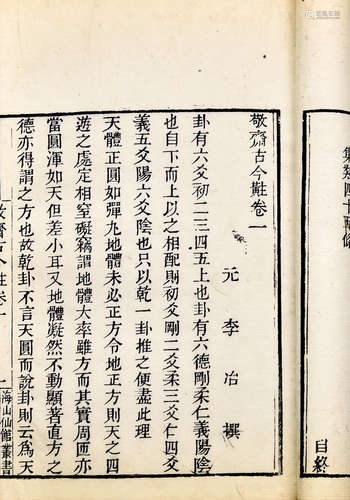 集類四十
目終
敬齋古今黈卷一
元 李冶 撰
卦有六爻初二三四五上也卦有六德剛柔仁義陽陰
也自下而上以之相配則初爻剛二爻柔三爻仁四爻
義五爻陽六爻陰也只以乾一卦推之便盡此理
天體正圓如彈丸地體未必正方令地正方則天之四
遊之處定相窒礙竊謂地體大率雖方而其實周匝亦
當圓渾如天但差小耳又地體凝然不動顯著直方之
德亦得謂之方也故乾卦不言天圓而說卦則云為天
敬齋古今黈卷一
一
海山仙館叢書